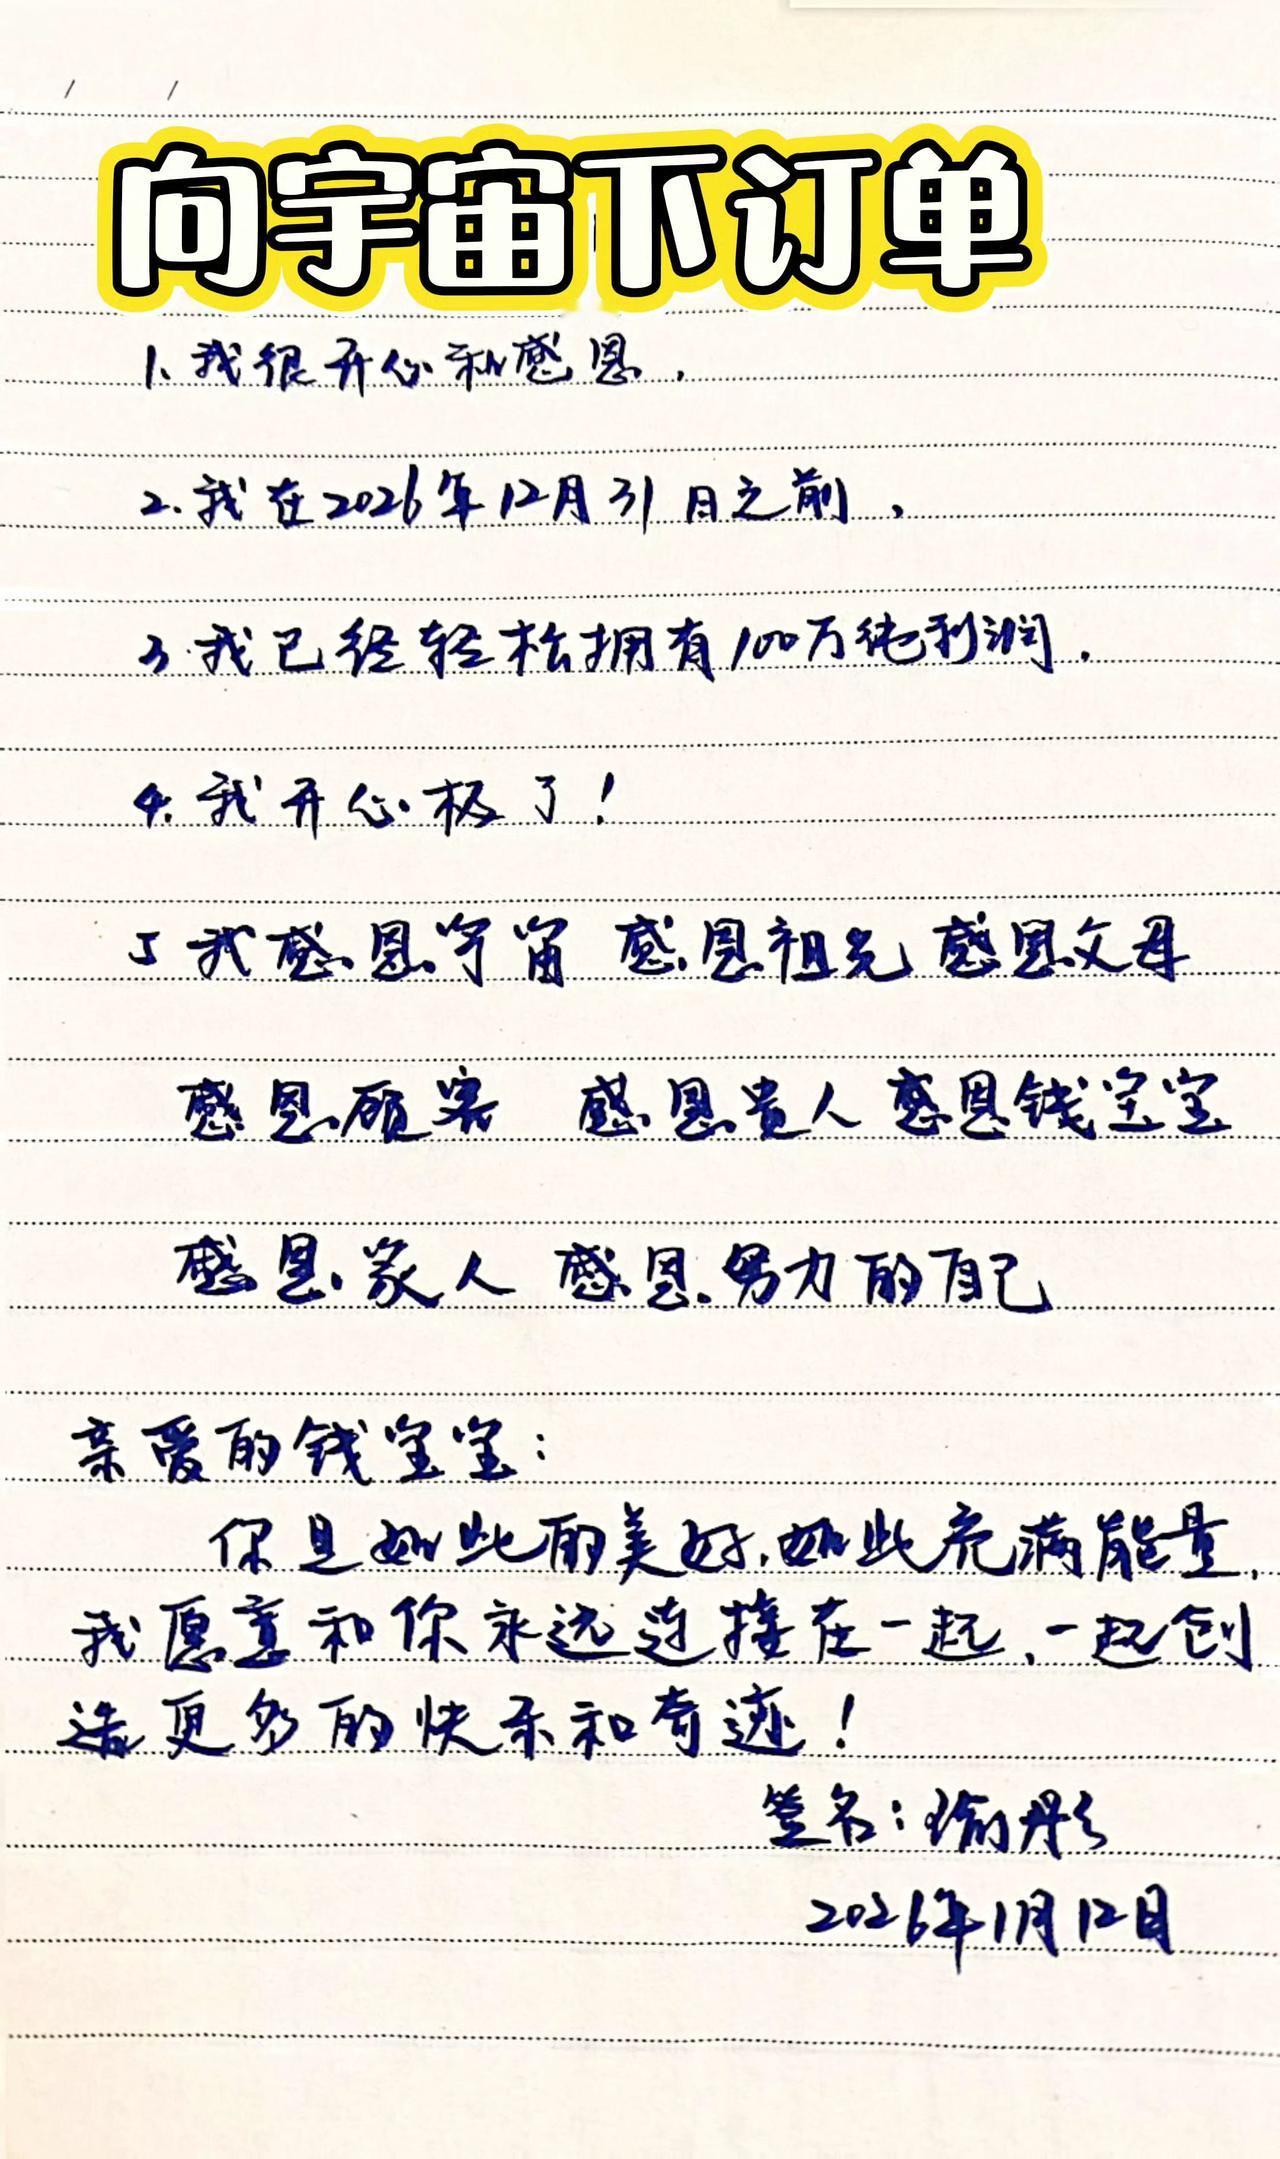 向宇宙下订单
1、我很开心和感恩,
2.我在2026年12月31日之前,
3.我已经轻松拥有100万纯利润.
4.我开心极了!
5我感恩宇宙 感恩祖先 感恩父母
感恩顾客 感恩贵人 感恩钱宝宝
感恩家人 感恩努力的自己
亲爱的钱宝宝:
你是如此的美好,如此充满能量,
我愿意和你永远连接在一起,一起创
造更多的快乐和奇迹!
签名:瑜彤
2026年1月12日